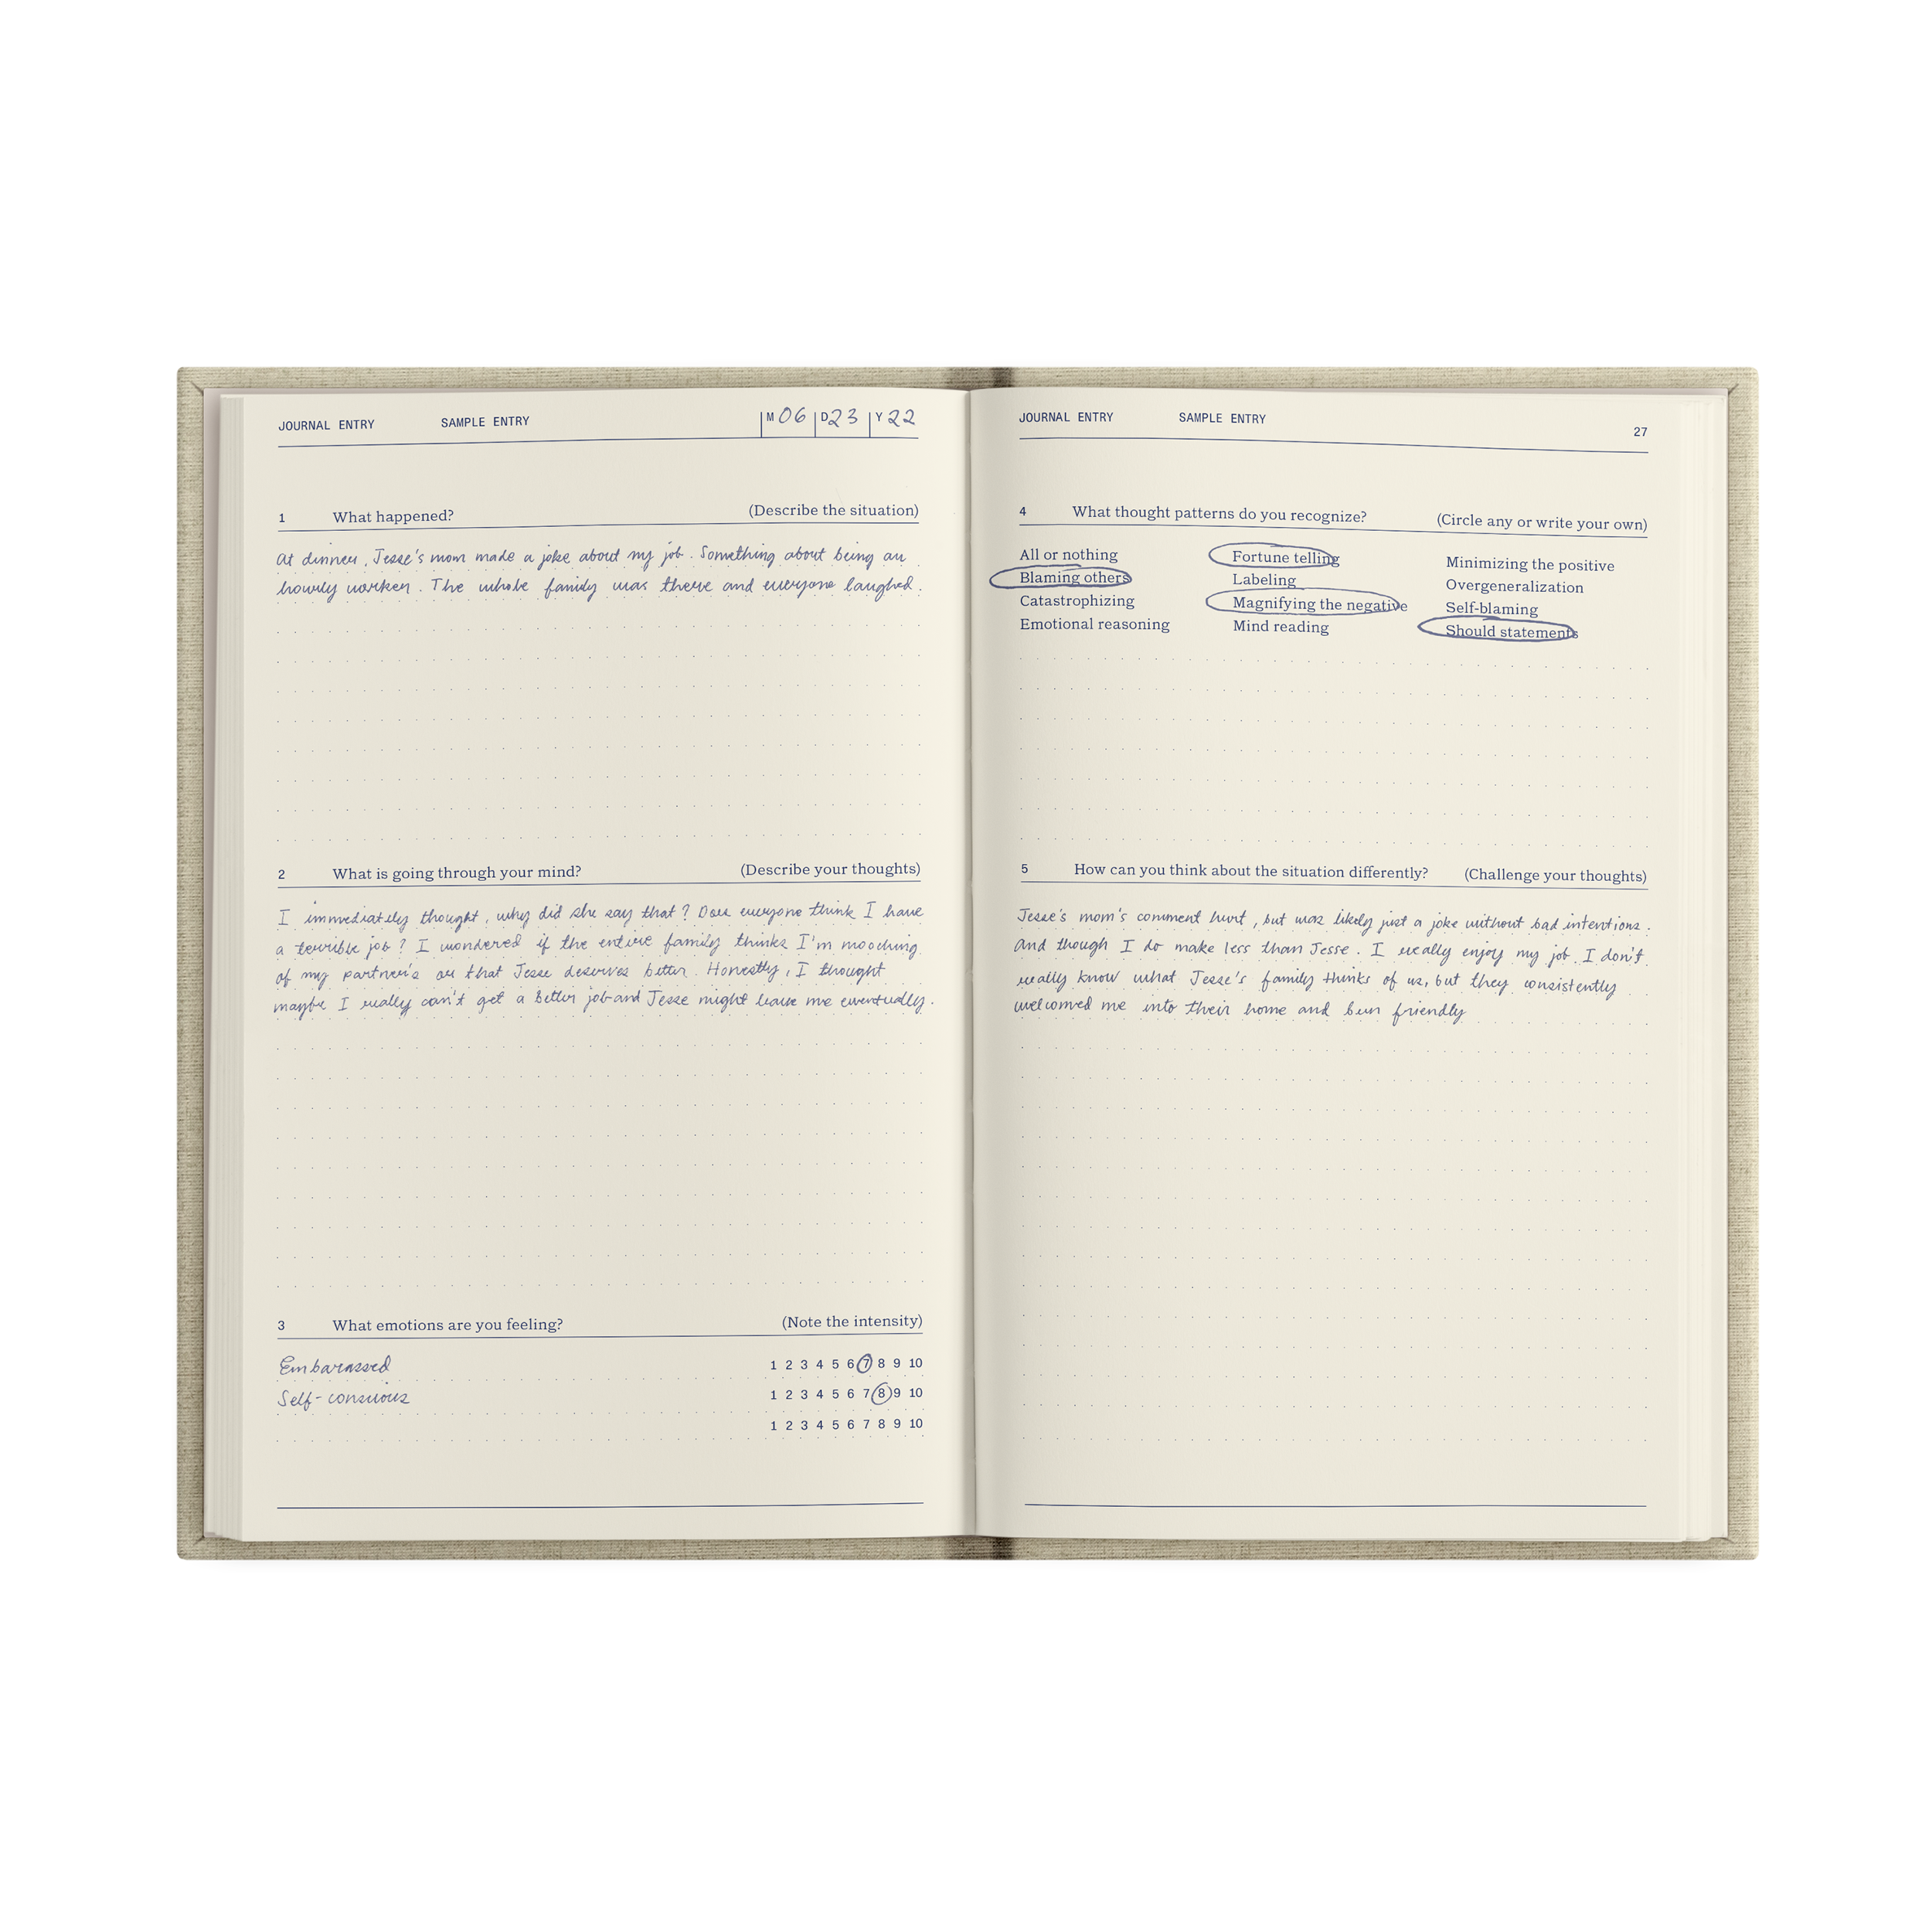 JOURNAL ENTRY SAMPLE ENTRY M 06 D 23 Y 22
1 What happened? (Describe the situation)
At dinner, Jesse's mom made a joke about my job. Something about being an
hourly worker. The whole family was there and everyone laughed.
2 What is going through your mind? (Describe your thoughts)
I immediately thought, why did she say that? Does everyone think I have
a terrible job? I wondered if the entire family thinks I'm mooching
of my partner's or that Jesse deserves better. Honestly, I thought
maybe I really can't get a better job and Jesse might leave me eventually.
3 What emotions are you feeling? (Note the intensity)
Embarassed 1 2 3 4 5 6 7 8 9 10
Self-consuious 1 2 3 4 5 6 7 8 9 10
1 2 3 4 5 6 7 8 9 10
JOURNAL ENTRY SAMPLE ENTRY 27
4 What thought patterns do you recognize? (Circle any or write your own)
All or nothing Fortune telling Minimizing the positive
Blaming others Labeling Overgeneralization
Catastrophizing Magnifying the negative Self-blaming
Emotional reasoning Mind reading Should statements
5 How can you think about the situation differently? (Challenge your thoughts)
Jesse's mom's comment hurt, but was likely just a joke without bad intentions.
And though I do make less than Jesse. I really enjoy my job. I don't
really know what Jesse's family thinks of us, but they consistently
welcomed me into their home and been friendly